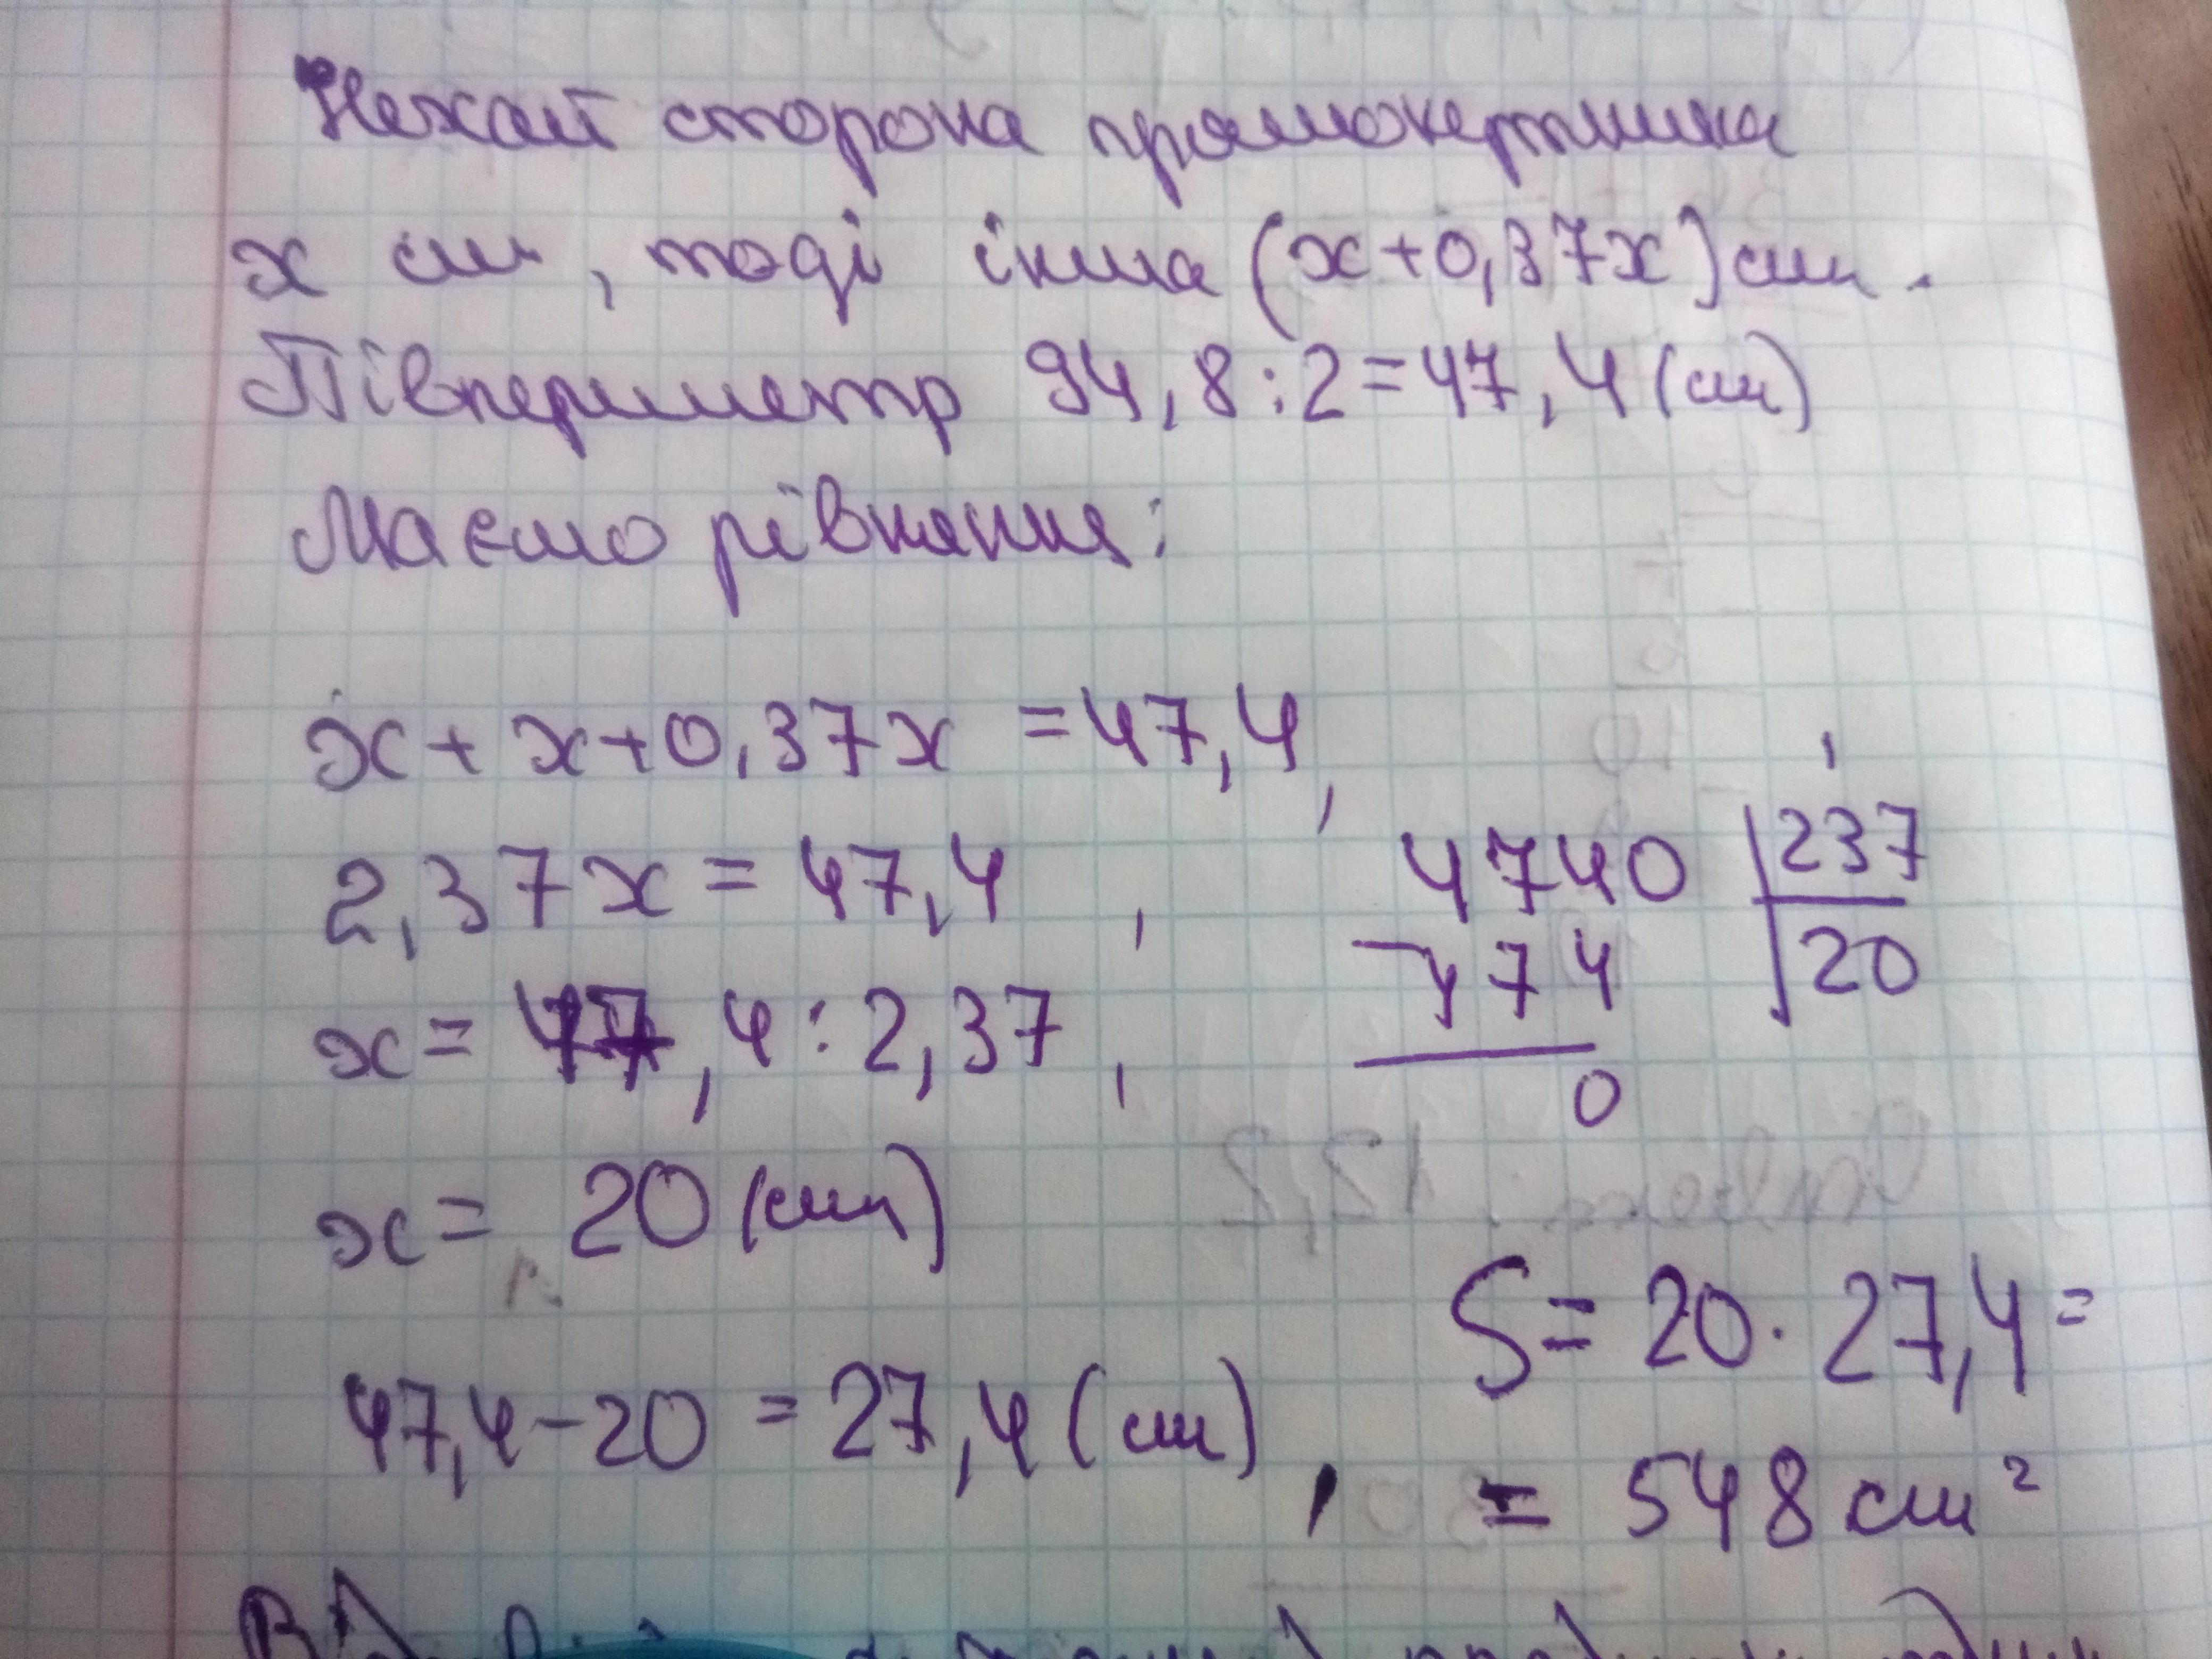 Нехай сторона прямокутника
x см, тоді інша (x+0,37x) см.
Півпериметр 94,8:2=47,4 (см)
Маємо рівняння:
x+x+0,37x=47,4,
2,37x=47,4,
4740 237
474 20
0
x=47,4:2,37,
x=20 (см)
47,4-20=27,4 (см),
S=20·27,4=
=548 см²